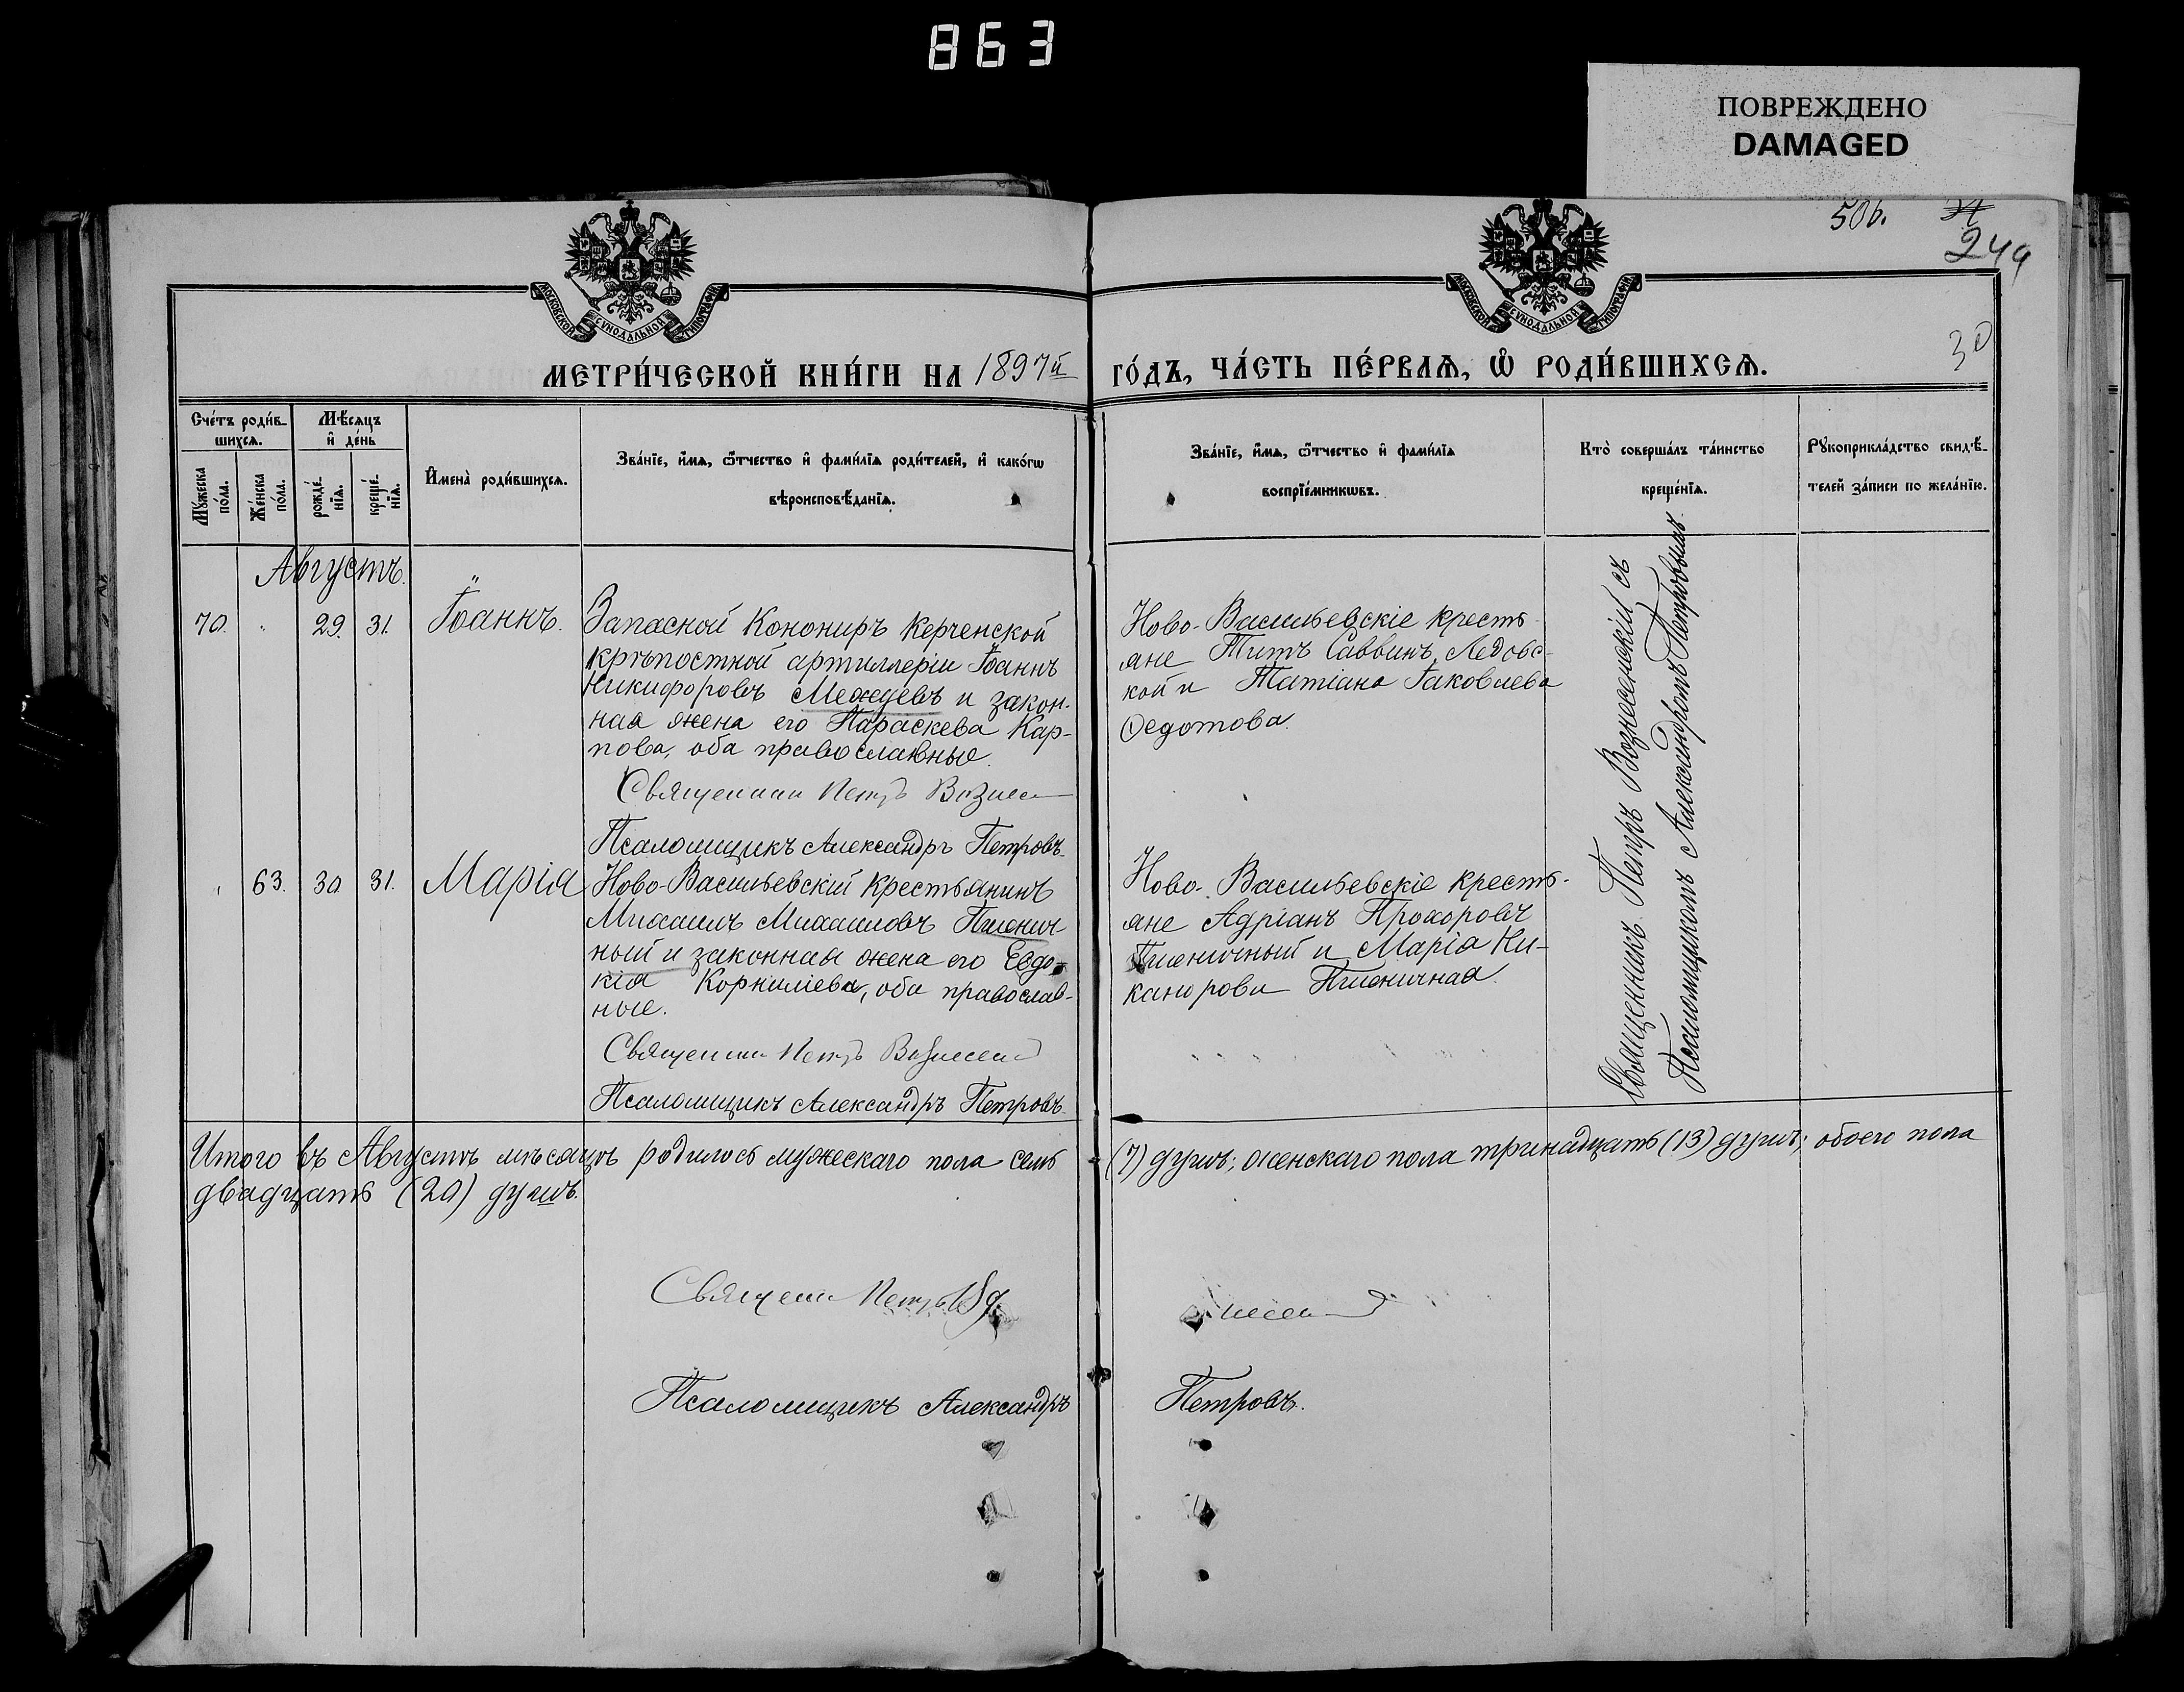 863
ПОВРЕЖДЕНО
DAMAGED
506.
54
249
30
МОСКОВСКОЙ СѴНОДАЛЬНОЙ ТИПОГРАФІИ
МОСКОВСКОЙ СѴНОДАЛЬНОЙ ТИПОГРАФІИ
МЕТРИ́ЧЕСКОЙ КНИ́ГИ НА 1897й ГО́ДЪ, ЧА́СТЬ ПЕ́РВАѦ, Ѡ РОДИ́ВШИХСѦ.
Сче́тъ роди́в-
шихсѧ.
Мѣ́сѧцъ
и҆ де́нь
Мꙋ́жеска
по́ла.
Же́нска
по́ла.
рожде́-
нїѧ.
креще́-
нїѧ.
И҆мена̀ роди́вшихсѧ.
Зва́нїе, и҆́мѧ, ѻ҆́тчество и҆ фами́лїѧ роди́телей, и҆ како́гѡ
вѣроисповѣ́данїѧ.
Зва́нїе, и҆́мѧ, ѻ҆́тчество и҆ фами́лїѧ
воспрїе́мникѡвъ.
Кто̀ соверша́лъ та́инство
креще́нїѧ.
Рꙋкоприкла́дство свидѣ́-
телей за́писи по жела́нїю.
Августъ.
70. " 29. 31. Іоаннъ.
Запасной Конониръ Керченской
крѣпостной артиллеріи Іоаннъ
Никифоровъ Межуевъ и закон-
ная жена его Параскева Кар-
пова, оба православные.
Священник Петръ Вознесен
Псаломщикъ Александръ Петровъ.
Ново-Васильевскіе кресть-
яне Титъ Саввинъ Ледовс-
кой и Татіана Іаковлева
Федотова.
Священникъ Петръ Вознесенскій съ
Псаломщикомъ Александромъ Петровымъ.
63. 30 31. Марія
Ново-Васильевскій крестьянинъ
Михаилъ Михаиловъ Пшенич-
ный и законная жена его Евдо-
кія Корниліева, оба православ-
ные.
Священник Петръ Вознесен
Псаломщикъ Александръ Петровъ.
Ново-Васильевскіе кресть-
яне Адріанъ Прохоровъ
Пшеничный и Марія Ни-
канорова Пшеничная.
Итого въ Августѣ мѣсяцѣ родилось мужескаго пола семь (7) душъ; женскаго пола тринадцать (13) душъ; обоего пола
двадцать (20) душъ.
Священ Петръ Воз несен
Псаломщикъ Александръ Петровъ.